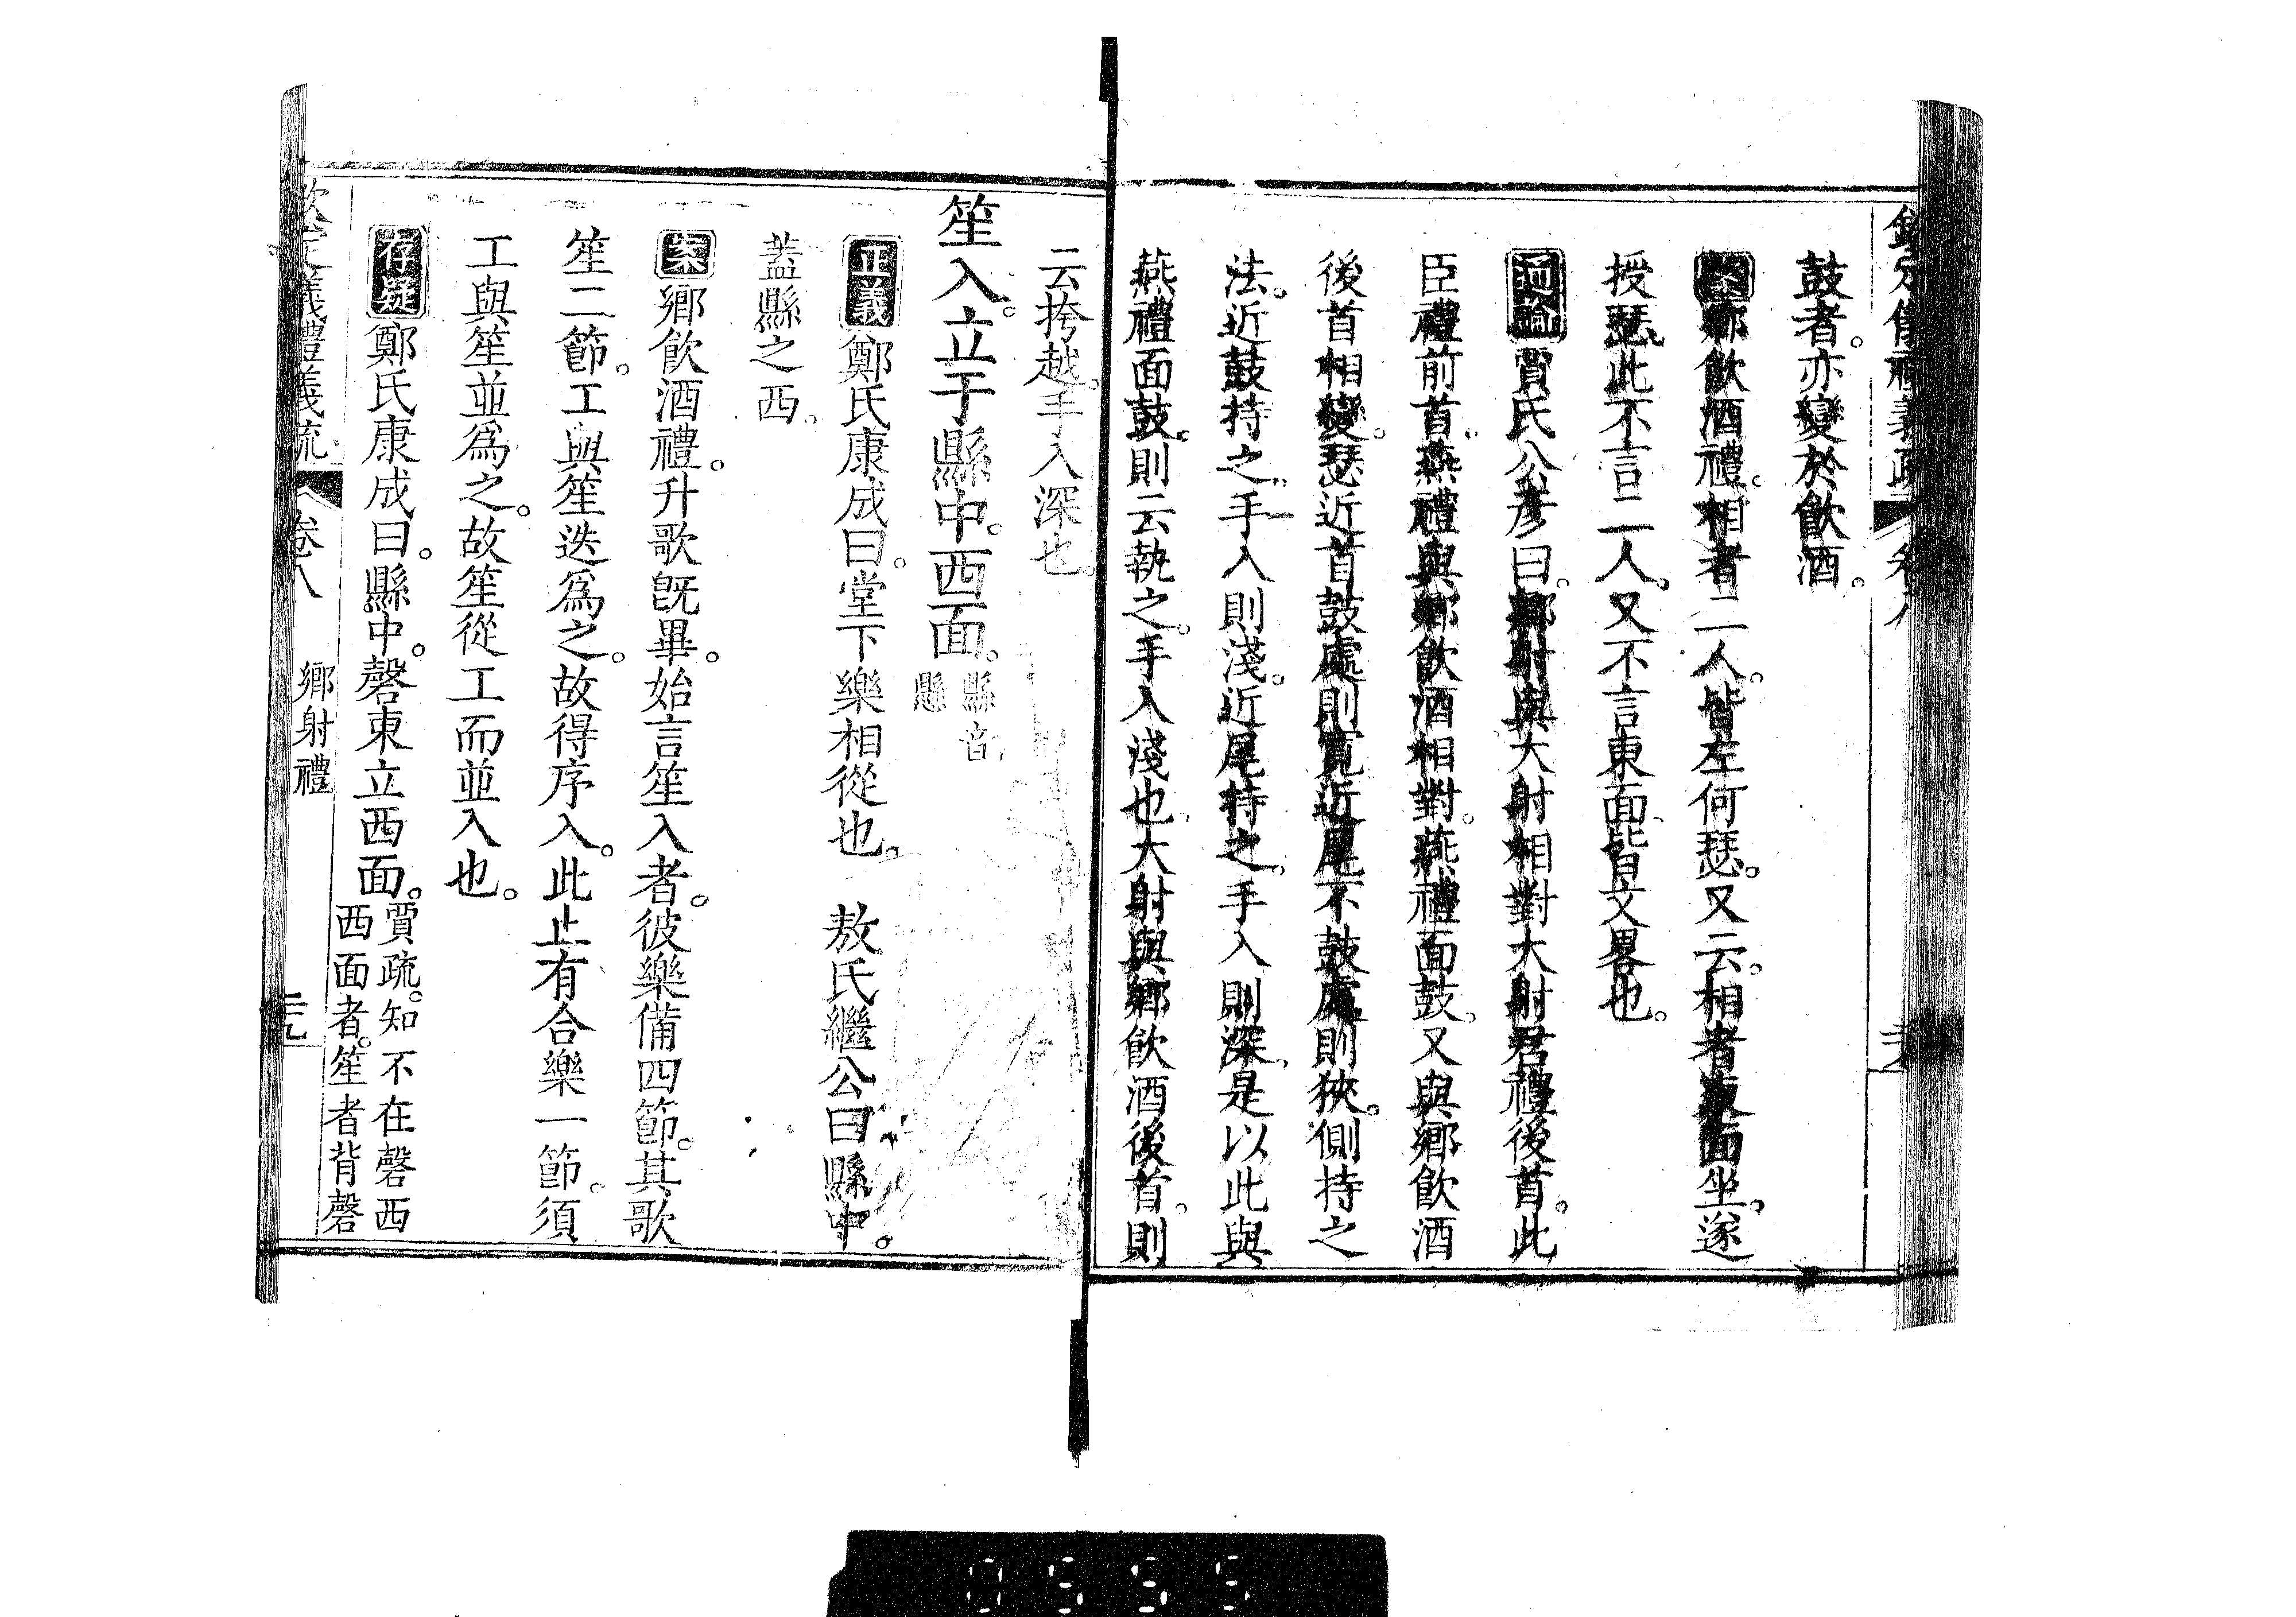 鼓者。亦變於飲酒。
案鄉飲酒禮。相者二人。皆左何瑟。又云。相者東面坐。遂
授瑟。此不言二人。又不言東面。皆文畧也。
通論賈氏公彥曰。鄉射與大射相對。大射君禮後首。此
臣禮前首。燕禮與鄉飲酒相對。燕禮面鼓。又與鄉飲酒
後首相變。瑟近首鼓處則寬。近尾不鼓處則狹。側持之
法。近鼓持之。手入則淺。近尾持之。手入則深。是以此與
燕禮面鼓。則云執之。手入淺也。大射與鄉飲酒後首。則
云挎越。手入深也。
笙入。立于縣中。西面。縣音
懸
正義鄭氏康成曰。堂下樂相從也。 敖氏繼公曰。縣中。
蓋縣之西。
案鄉飲酒禮。升歌旣畢。始言笙入者。彼樂備四節。其歌
笙二節。工與笙迭爲之。故得序入。此止有合樂一節。須
工與笙並爲之。故笙從工而並入也。
存疑鄭氏康成曰。縣中。磬東立西面。賈疏。知不在磬西
西面者。笙者背磬
欽定儀禮義疏 卷八 鄉射禮